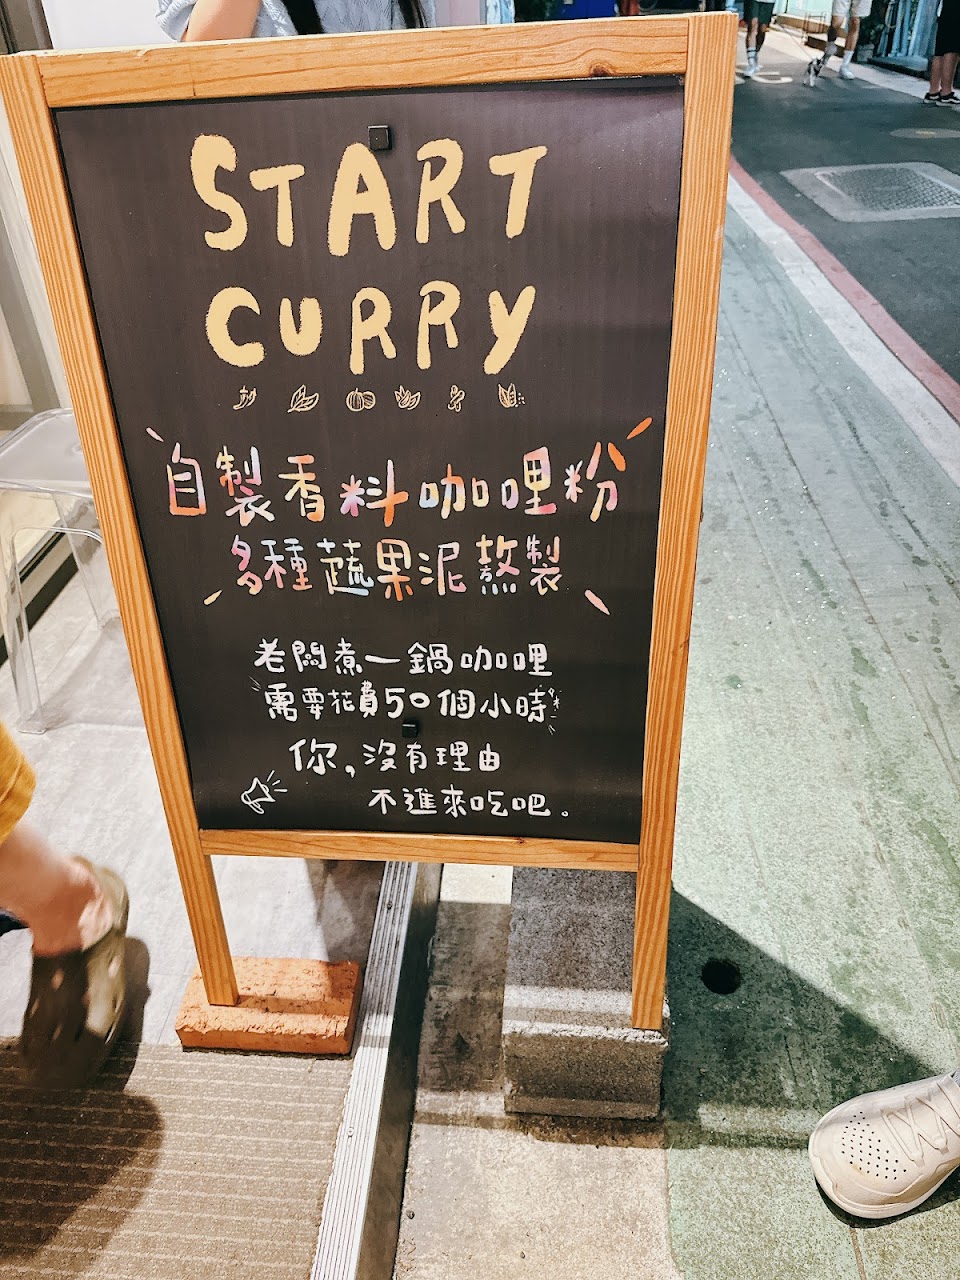 START
CURRY
自製香料咖哩粉
多種蔬果泥熬製
老闆煮一鍋咖哩
需要花費50個小時
你,沒有理由
不進來吃吧。